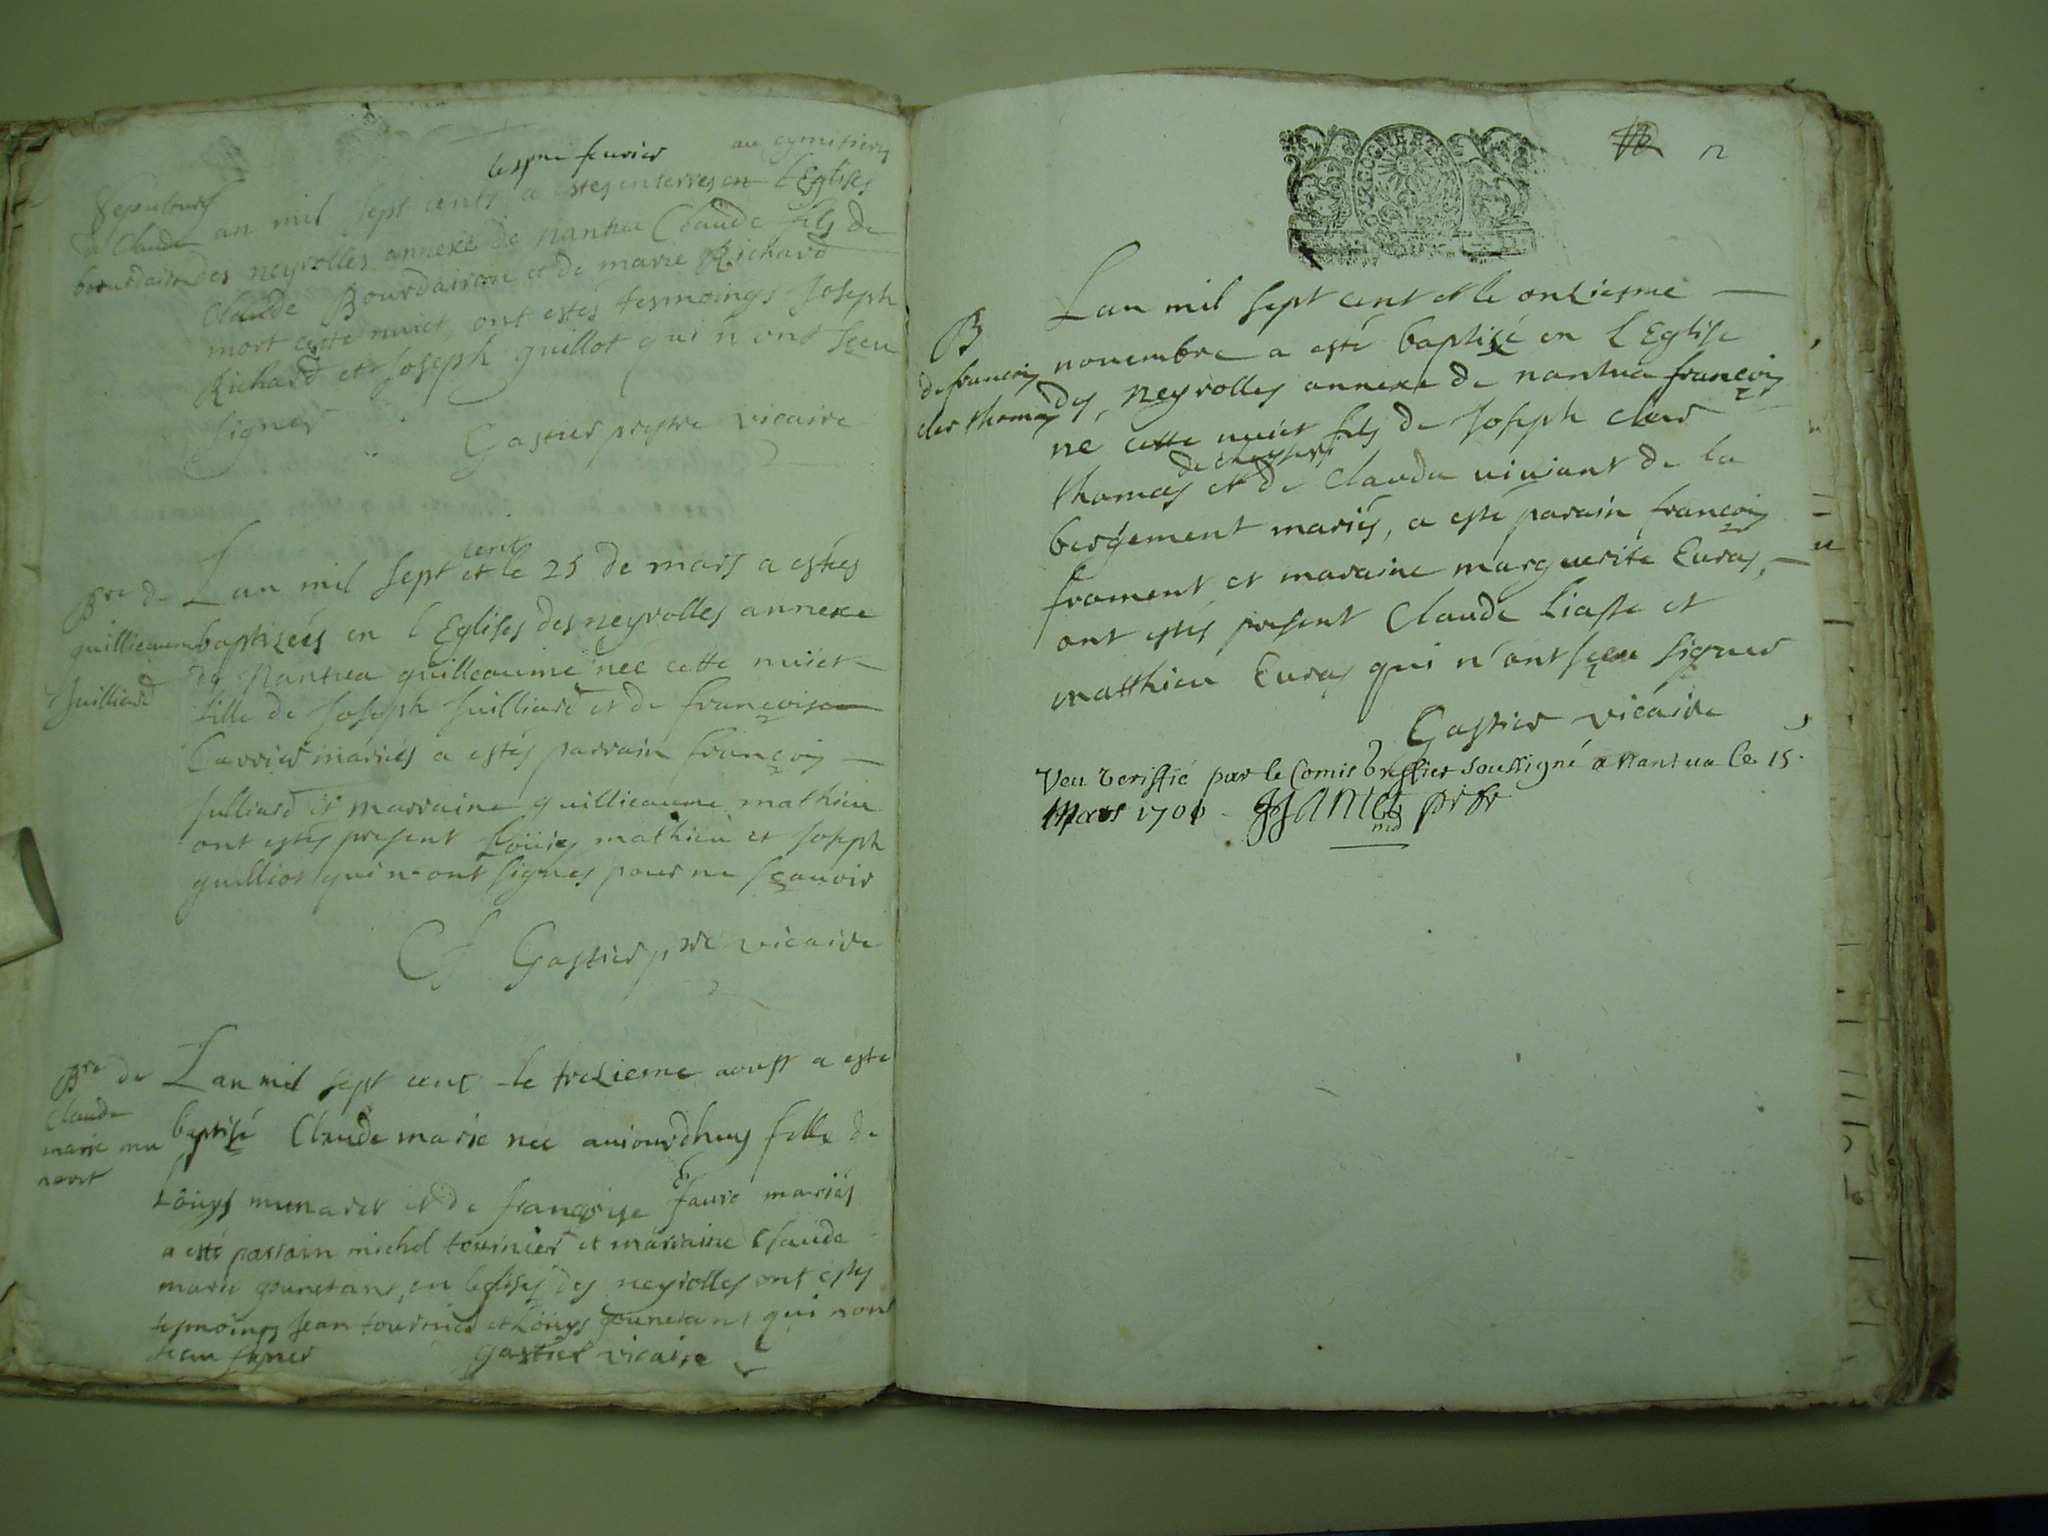 au cymitiere
fevrier
Sepulture
de Claude
bourdairon
Lan mil sept cents a estes enterres en l Eglises
des neyrolles annexe de nantua Claude fils de
claude Bourdairon et de marie Richard
mort cette nuict, ont estés tesmoings Joseph
Richard et Joseph guillot qui n ont sceu
signer
Gastier prestre vicaire
Bme de
guillieaume
Juilliard
cent
Lan mil sept et le 25 de mars a estées
baptizées en l Eglises des neyrolles annexe
de Nantua guilleaume née cette nuict
fille de Joseph Juilliard et de francoise
Carrier mariés a estés parrain françois
Julliard et marraine guillieaume mathieu
ont estés present Louis mathieu et Joseph
guilliot qui n ont signes pour ne sçauoir
Gastier pre vicaire
Bme de
Claude
marie mu
naret
Lan mil sept cent le treziesme aoust a este
baptisé Claude marie née auiourdhuy fille de
Louys munaret et de françoise faure mariés
a esté parrain michel tournier et marraine Claude
marie en leglises des neyrolles ont estes
tesmoings Jean tournier et Louys qui nont
sceu signer Gastier vicaire
12
B
de francois
cler thomas
Lan mil sept cent et le onziesme
novembre a esté baptisé en l Eglise
des neyrolles annexe de nantua françois
né cette nuict fils de Joseph cler
thomas et de claudu viviant de la
bergement mariés, a esté parain françois
froment et maraine marguerite Euras,
ont estés present Claude Liasse et
matthieu Euras qui n ont sceu signer
Gastier vicaire
Veu veriffié par le Comis Greffier soussigné a Nantua le 15.
Mars 1701